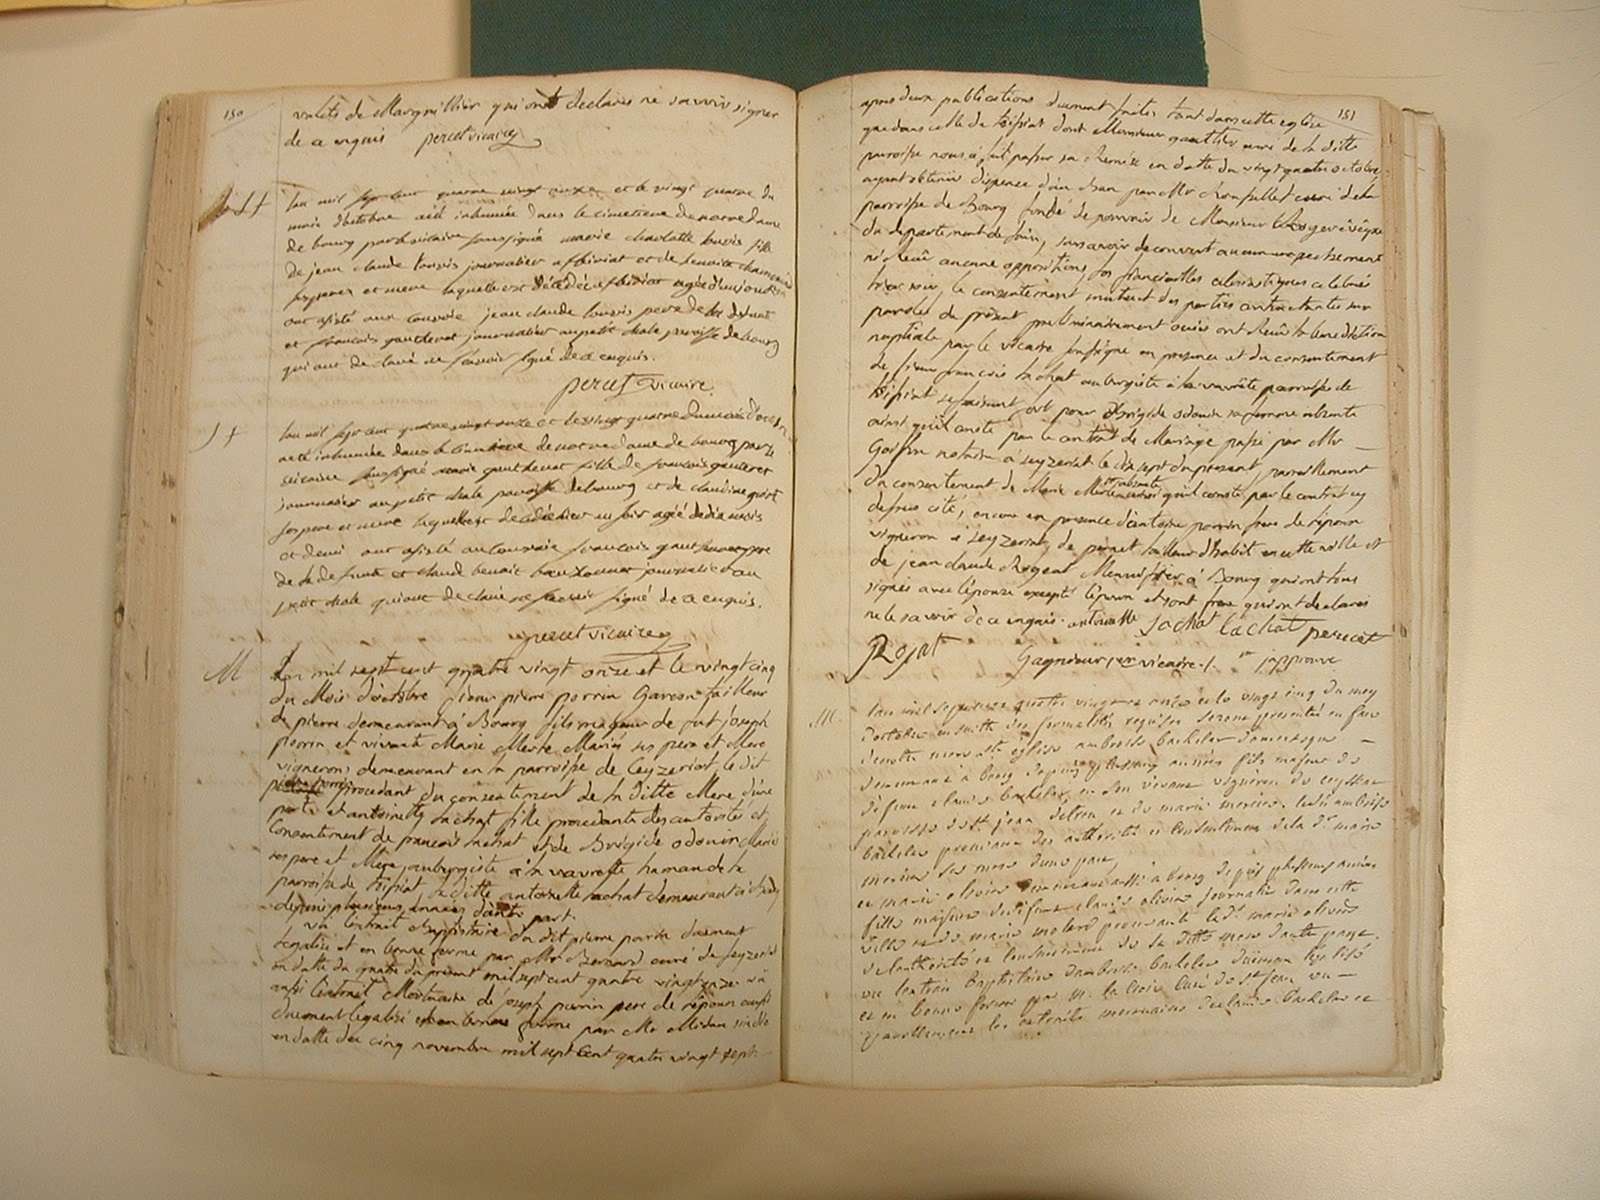 150
valets de Marguillier qui ont declarés ne savoir signer
de ce enquis percet vicaire
St
Lan mil sept cent quatre vingt onze et le vingt quatre du
mois d'octobre a été inhumée dans le cimetiere de notre dame
de bourg par le vicaire soussigné marie charlotte louvis fille
de jean claude louvis journalier a et de benoite
ses pere et mere laquelle est décédée agée d'un jour
ont assisté au convoie jean claude louvis pere de la defunte
et francois gautheret journalier au petit chale paroisse de bourg
qui ont declaré ne scavoir signé de ce enquis.
percet vicaire
St
Lan mil sept cent quatre vingt onze et le vingt quatre du mois d'octobre
a été inhumée dans le cimetiere de notre dame de bourg par le
vicaire soussigné marie gautheret fille de francois gauteret
journalier au petit chale paroisse de bourg et de claudine
ses pere et mere laquelle est decedée hier au soir agée de dix mois
et demi ont assisté au convoie francois gautheret pere
de la defunte et claude benoit journalier au
petit chale qui ont declaré ne scavoir signé de ce enquis.
percet vicaire
M
Lan mil sept cent quatre vingt onze et le vingt cinq
du Mois d'octobre sieur pierre perrin Garcon tailleur
de pierre demeurant à Bourg fils majeur de fut joseph
perrin et vivante Marie Merle Mariés ses pere et Mere
vignerons demeurant en la parroisse de Ceyzeriat le dit
procedant du consentement de la ditte Mere d'une
part et antoinette Lachat fille procedante des autorités et
Consentement de francois Lachat et de Brigide odouin Mariés
ses pere et Mere aubergiste à la vavrette hameau de la
parroisse de tossiat la ditte antoinette Lachat demeurant à Bourg
depuis plusieurs années d'autre part.
vû l'extrait Baptistaire du dit pierre perrin duement
Légalisé et en bonne forme par Mr Bernard curé de Ceyzeriat
en datte du quatre du présent mil sept cent quatre vingt onze vû
aussi l'extrait Mortuaire de joseph perrin pere de l'époux aussi
duement legalisé et en bonne forme par Mr
en datte du cinq novembre mil sept cent quatre vingt sept
151
apres deux publications duement faites tant dans cette eglise
que dans celle de tossiat dont Monsieur gauthier curé de la ditte
parroisse nous a fait passer sa Remise en datte du vingt quatre octobre
ayant obtenu dispense d'un ban par Mr Chonpillet curé de la
parroisse de Bourg fondé de pouvoir de Monsieur Royer évêque
du departement de lain, sans avoir decouvert aucun empechement
ni Reçu aucune opposition, les fiancialles ecclesiastiques celebrées
hier soir, le consentement mutuel des parties contractantes sur
paroles de présent preliminairement ouies ont Reçû la benediction
nuptiale par le vicaire soussigné en presence et du consentement
de sieur francois Lachat aubergiste à la vavrette parroisse de
tossiat se faisant fort pour Brigide odouin sa femme absente
ainsi qu'il conste par le contrat de Mariage passé par Mr
notaire à Ceyzeriat le dix sept du present, pareillement
du consentement de Marie Merle absente qu'il conste par le contrat cy
dessus cité, encore en presence d'antoine perrin frere de l'époux
vigneron à Ceyzeriat, de pernet tailleur d'habit en cette ville et
de jean claude Rogeat Menuisier à Bourg qui ont tous
signés avec l'épouse excepté l'époux et sont frere qui ont declarés
ne le savoir de ce enquis. antoinette Lachat Lachat pernet
Rojat Gagnieur 1er vicaire japprouve
M.
Lan mil sept cent quatre vingt et onze et le vingt cinq du mois
d'octobre ensuitte des formalités requises se sont presentés en face
de notre mere ste eglise ambroise bachelar domestique
demeurant a bourg depuis plusieurs années fils majeur de
défunt claude bachelar, en son vivant vigneron de
parroisse de st jean et de marie mercier, ledit ambroise
bachelar procedant des authorité et consentement de la de marie
mercier sa mere d'une part,
et marie olivier demeurant aussi a bourg depuis plusieurs années
fille majeure de défunt claude olivier journalier dans cette
ville et de marie molard procedante la de marie olivier
de l'authorité et consentement de sa ditte mere d'autre part.
vu lextrait Baptistaire d'ambroise bachelar duement légalisé
et en bonne forme par M. la Croix Curé de st jean vu
pareillement les extraits mortuaires de claude Bachelar et